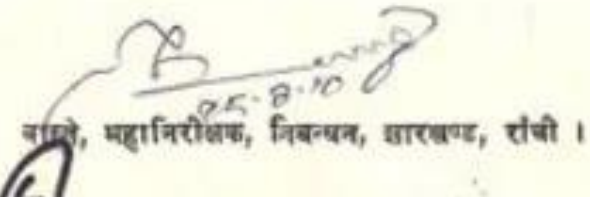 25-8-10
वास्ते, महानिरीक्षक, निबन्धन, झारखण्ड, राँची ।